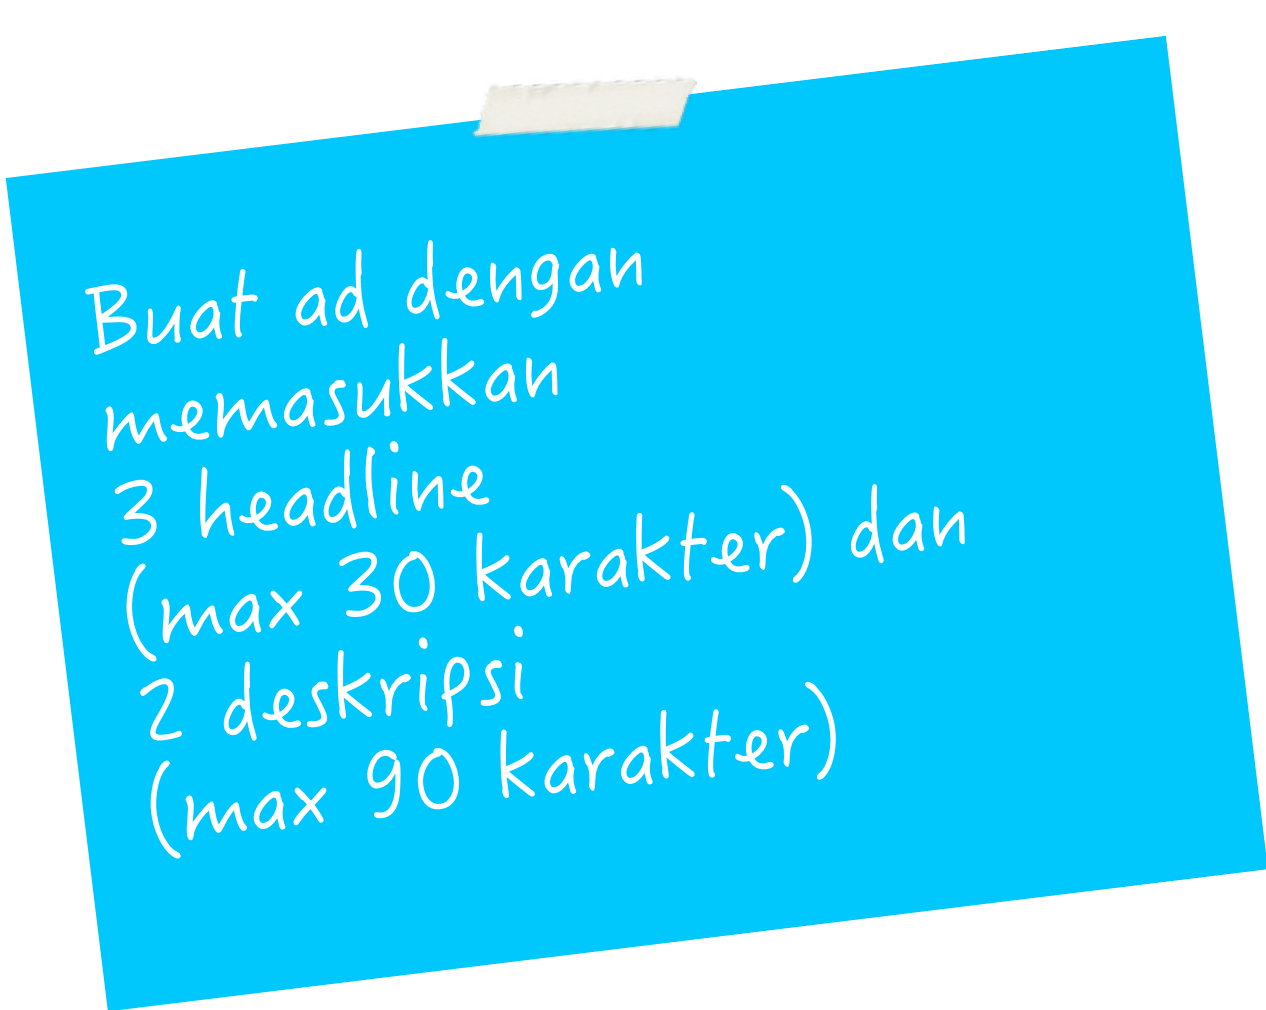 Buat ad dengan
memasukkan
3 headline
(max 30 karakter) dan
2 deskripsi
(max 90 karakter)